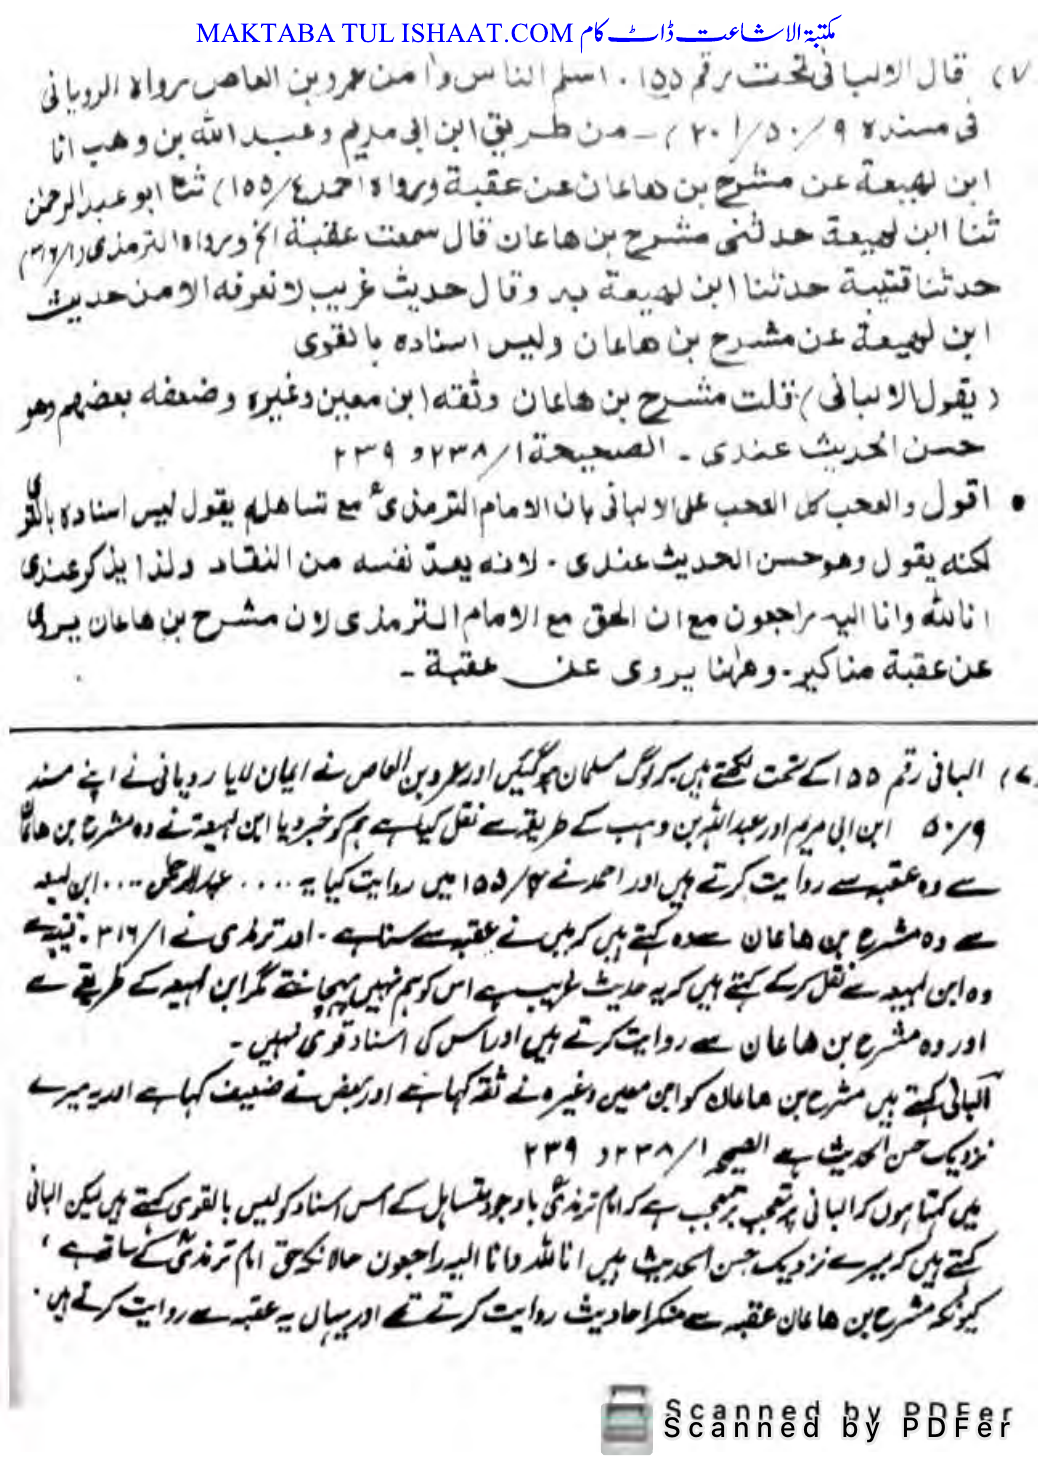 MAKTABA TUL ISHAAT.COM مکتبۃ الاشاعت ڈاٹ کام
(٧) قال الالبانی تحت رقم ١٥٥. اسلم الناس واٰمن عمرو بن العاص رواه الرویانی
فی مسنده ٩/٥٠/٢٠١) ـ من طریق ابن ابی مریم وعبد الله بن وهب انا
ابن لهیعة عن مشرح بن هاعان عن عقبة ورواه احمد ٤/١٥٥) ثنا ابو عبد الرحمٰن
ثنا ابن لهیعة حدثنی مشرح بن هاعان قال سمعت عقبة الخ ورواه الترمذی (١/٣١٦)
حدثنا قتیبة حدثنا ابن لهیعة به وقال حدیث غریب لا نعرفه الا من حدیث
ابن لهیعة عن مشرح بن هاعان ولیس اسناده بالقوی
(یقول الالبانی) قلت مشرح بن هاعان وثقه ابن معین وغیره وضعفه بعضهم وهو
حسن الحدیث عندی ـ الصحیحة ١/٢٣٨ و ٢٣٩
• اقول والعجب کل العجب علی الالبانی بان الامام الترمذیؒ مع تساهله یقول لیس اسناده بالقوی
لکنه یقول وهو حسن الحدیث عندی ـ لانه یعدّ نفسه من النقاد ولذا یذکر عندی
انا لله وانا الیه راجعون مع ان الحق مع الامام الترمذی لان مشرح بن هاعان یروی
عن عقبة مناکیر ـ وهٰهنا یروی عن عقبة ـ
(٧) البانی رقم ١٥٥ کے تحت لکھتے ہیں کہ لوگ مسلمان ہوگئیں اور عمرو بن العاص نے ایمان لایا رویانی نے اپنے مسند
٩/٥٠ ابن ابی مریم اور عبد اللہ بن وہب کے طریقہ سے نقل کیا ہے ہم کو خبر دیا ابن لہیعۃ نے وہ مشرح بن ھاعان
سے وہ عقبہ سے روایت کرتے ہیں اور احمد نے ٤/١٥٥ میں روایت کیا یہ .... عبد الرحمٰن .... ابن لہیعہ
سے وہ مشرح بن ھاعان سے وہ کہتے ہیں کہ میں نے عقبہ سے سنا ہے ۔ اور ترمذی نے ١/٣١٦ ۔ قتیبہ سے
وہ ابن لہیعہ سے نقل کرکے کہتے ہیں کہ یہ حدیث غریب ہے اس کو ہم نہیں پہچانتے مگر ابن لہیعہ کے طریقے سے
اور وہ مشرح بن ھاعان سے روایت کرتے ہیں اور اس کی اسناد قوی نہیں ۔
البانی کہتے ہیں مشرح بن ھاعان کو ابن معین وغیرہ نے ثقہ کہا ہے اور بعض نے ضعیف کہا ہے اور یہ میرے
نزدیک حسن الحدیث ہے الصحیحہ ١/٢٣٨ و ٢٣٩
میں کہتا ہوں کہ البانی پر تعجب بر تعجب ہے کہ امام ترمذیؒ باوجود تساہل کے اس اسناد کو لیس بالقوی کہتے ہیں لیکن البانی
کہتے ہیں کہ میرے نزدیک حسن الحدیث ہیں انا للہ وانا الیہ راجعون حالانکہ حق امام ترمذیؒ کے ساتھ ہے ،
کیونکہ مشرح بن ھاعان عقبہ سے منکر احادیث روایت کرتے تھے اور یہاں یہ عقبہ سے روایت کرتے ہیں ۔
Scanned by PDFer
Scanned by PDFer